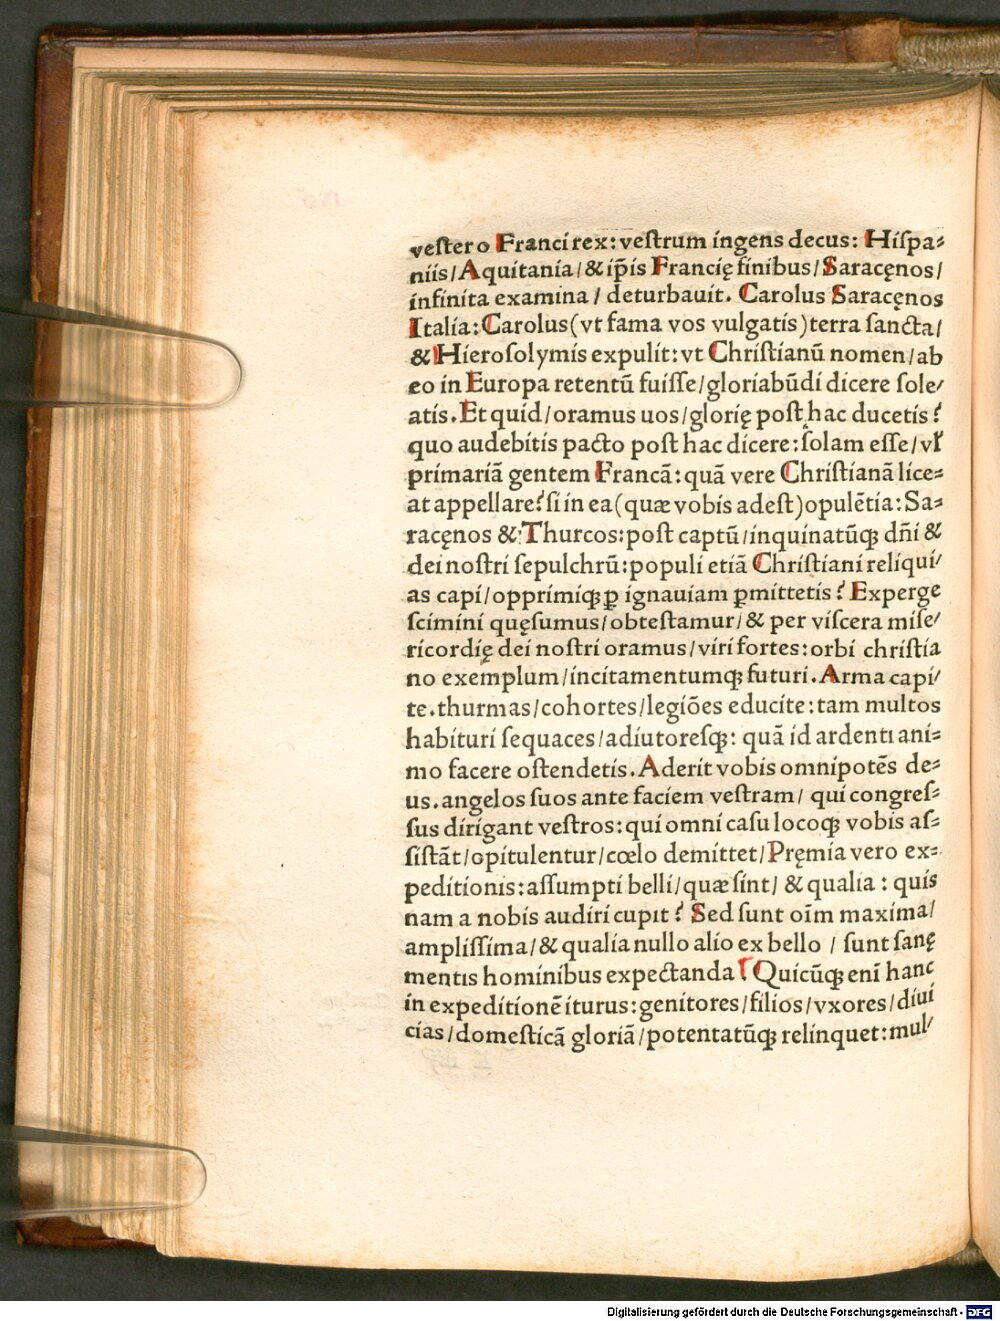 vestero Franci rex: vestrum ingens decus: Hispa⸗
niis/Aquitania/&ip̃is Francię finibus/Saracęnos/
infinita examina/ deturbauit. Carolus Saracęnos
Italia:Carolus(vt fama vos vulgatis)terra sancta/
&Hierosolymis expulit:vt Christianũ nomen/ab
eo in Europa retentũ fuisse/gloriabũdi dicere sole/
atis.Et quid/oramus uos/glorię post hac ducetis?
quo audebitis pacto post hac dicere:solam esse/vl
primariã gentem Francã:quã vere Christianã lice⸗
at appellare?si in ea(quæ vobis adest)opulẽtia:Sa⸗
racęnos & Thurcos:post captũ/inquinatũqꝫ dñi &
dei nostri sepulchrũ:populi etiã Christiani reliqui/
as capi/opprimiqꝫ ꝑ ignauiam ꝑmittetis? Experge
scimini quęsumus/obtestamur/& per viscera mise/
ricordię dei nostri oramus/viri fortes:orbi christia
no exemplum/incitamentumqꝫ futuri.Arma capi/
te.thurmas/cohortes/legiões educite:tam multos
habituri sequaces/adiutoresqꝫ: quã id ardenti ani⸗
mo facere ostendetis.Aderit vobis omnipotẽs de⸗
us.angelos suos ante faciem vestram/ qui congres⸗
sus dirigant vestros:qui omni casu locoqꝫ vobis as⸗
sistãt/opitulentur/cœlo demittet/Pręmia vero ex⸗
peditionis:assumpti belli/quæ sint/ & qualia : quis
nam a nobis audiri cupit? Sed sunt oĩm maxima/
amplissima/& qualia nullo alio ex bello / sunt sanę
mentis hominibus expectanda Quicũqꝫ eni hanc
in expeditionẽ iturus:genitores/filios/vxores/diui
cias/domesticã gloriã/potentatũqꝫ relinquet:mul/
Digitalisierung gefördert durch die Deutsche Forschungsgemeinschaft - DFG